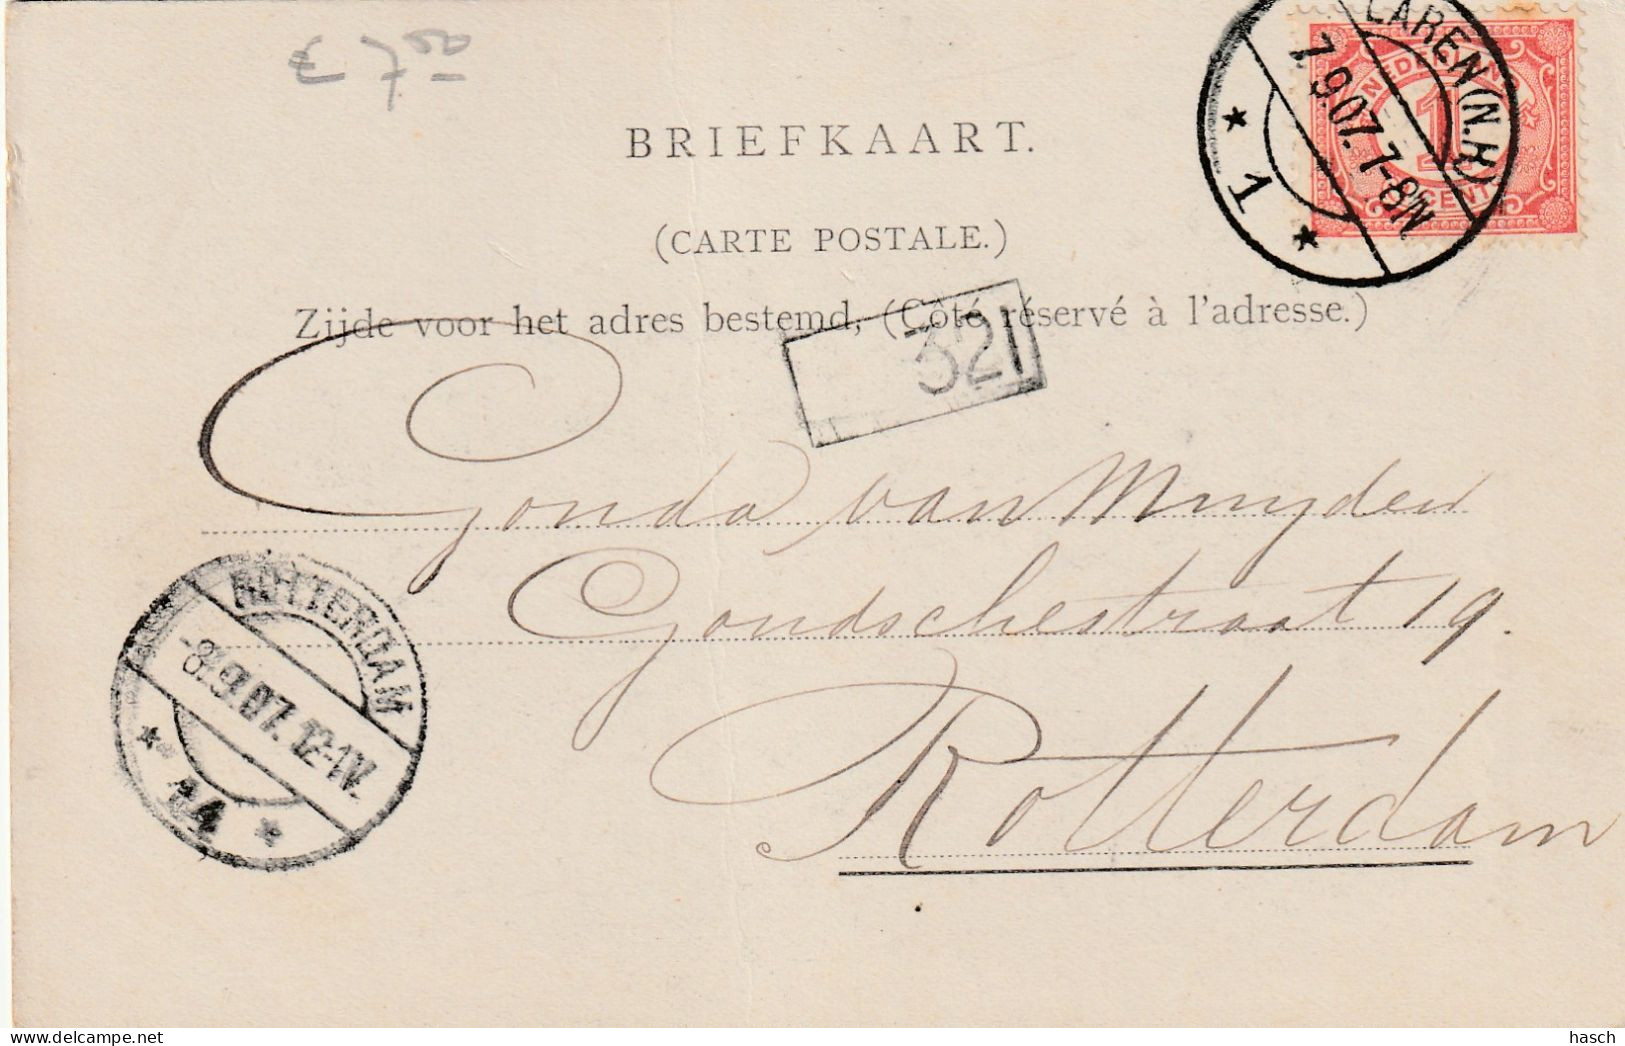 € 7.50
LAREN (N.H)
7.9.07. 7-8N
1
NEDERLAND
1
CENT
BRIEFKAART.
(CARTE POSTALE.)
Zijde voor het adres bestemd, (Côté réservé à l'adresse.)
321
Gonda van Muyden
Goudschestraat 19.
Rotterdam
ROTTERDAM
-8.9.07. 12-1V.
14
www.delcampe.net
hasch